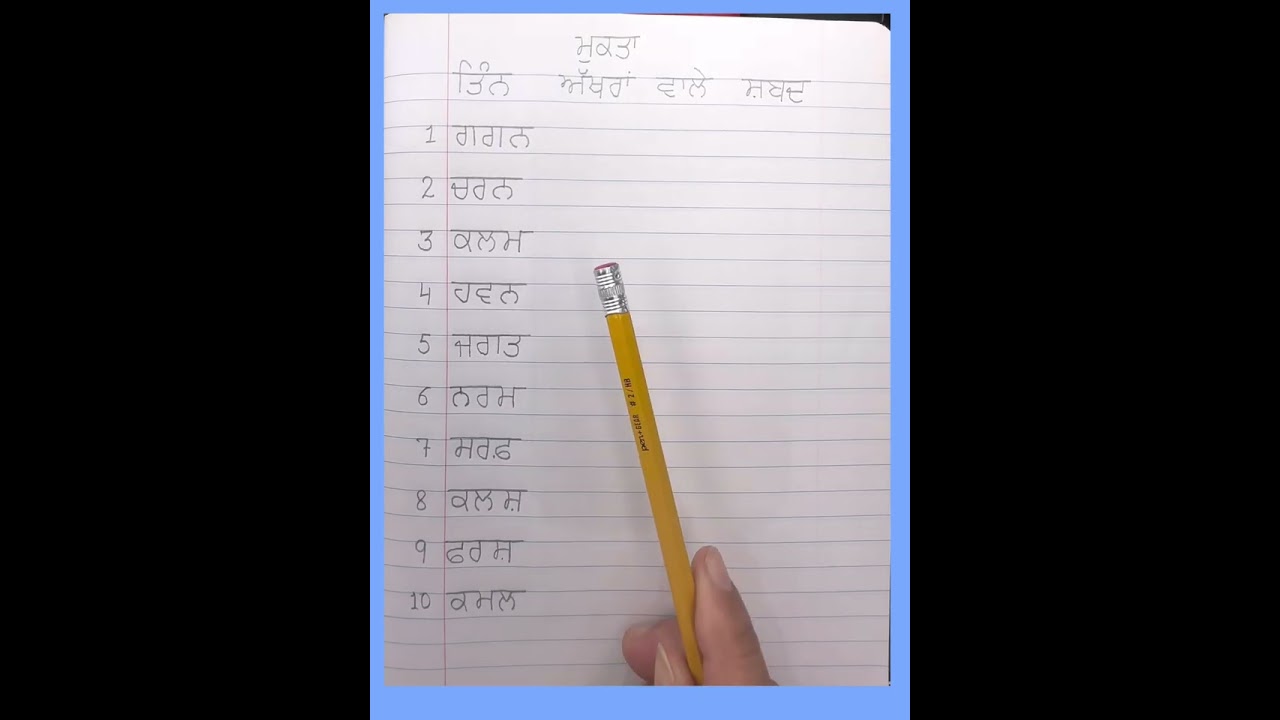 ਮੁਕਤਾ
ਤਿੰਨ ਅੱਖਰਾਂ ਵਾਲੇ ਸ਼ਬਦ
1 ਗਗਨ
2 ਚਰਨ
3 ਕਲਮ
4 ਹਵਨ
5 ਜਗਤ
6 ਨਰਮ
7 ਸਰਫ਼
8 ਕਲਸ਼
9 ਫਰਸ਼
10 ਕਮਲ
PEN+GEAR # 2/HB